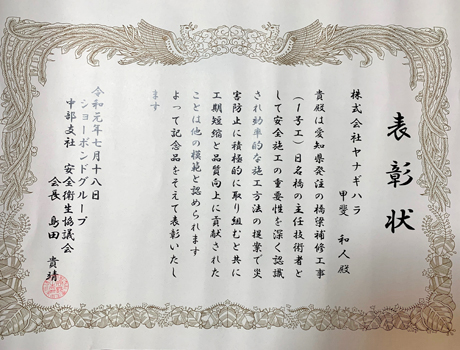 表彰状
株式会社ヤナギハラ
甲斐 和人殿
貴殿は愛知県発注の橋梁補修工事
(1号工)日名橋の主任技術者と
して安全施工の重要性を深く認識
され効率的な施工方法の提案で災
害防止に積極的に取り組むと共に
工期短縮と品質向上に貢献された
ことは他の模範と認められます
よって記念品をそえて表彰いたし
ます
令和元年七月十八日
ショーボンドグループ
中部支社 安全衛生協議会
会長 島田 貴靖